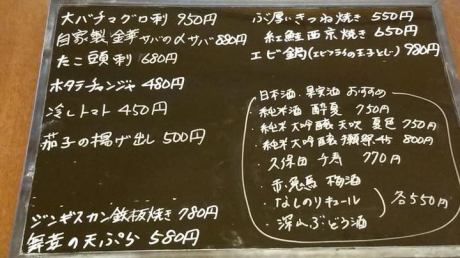 大バチマグロ刺 950円
自家製 金華サバの〆サバ 880円
たこ頭刺 680円
ホタテチャンジャ 480円
冷しトマト 450円
茄子の揚げ出し 500円
ジンギスカン鉄板焼き 780円
舞茸の天ぷら 580円
ぶ厚いきつね焼き 550円
紅鮭西京焼き 650円
エビ鍋(エビフライの玉子とじ) 980円
日本酒・果実酒 おすすめ
・純米酒 酔夏 750円
・純米大吟醸 天吹 夏色 750円
・純米大吟醸 獺祭45 800円
・久保田 千寿 770円
・赤兎馬 梅酒
・なしのリキュール
・深山ぶどう酒
各550円